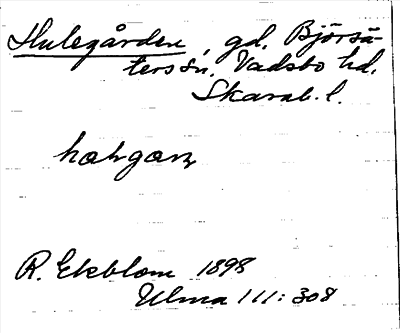 Hulegården, gd. Björsä-
ters sn. Vadsbo hd.
Skarab. l.
R. Ekblom 1898
Ulma 111: 308